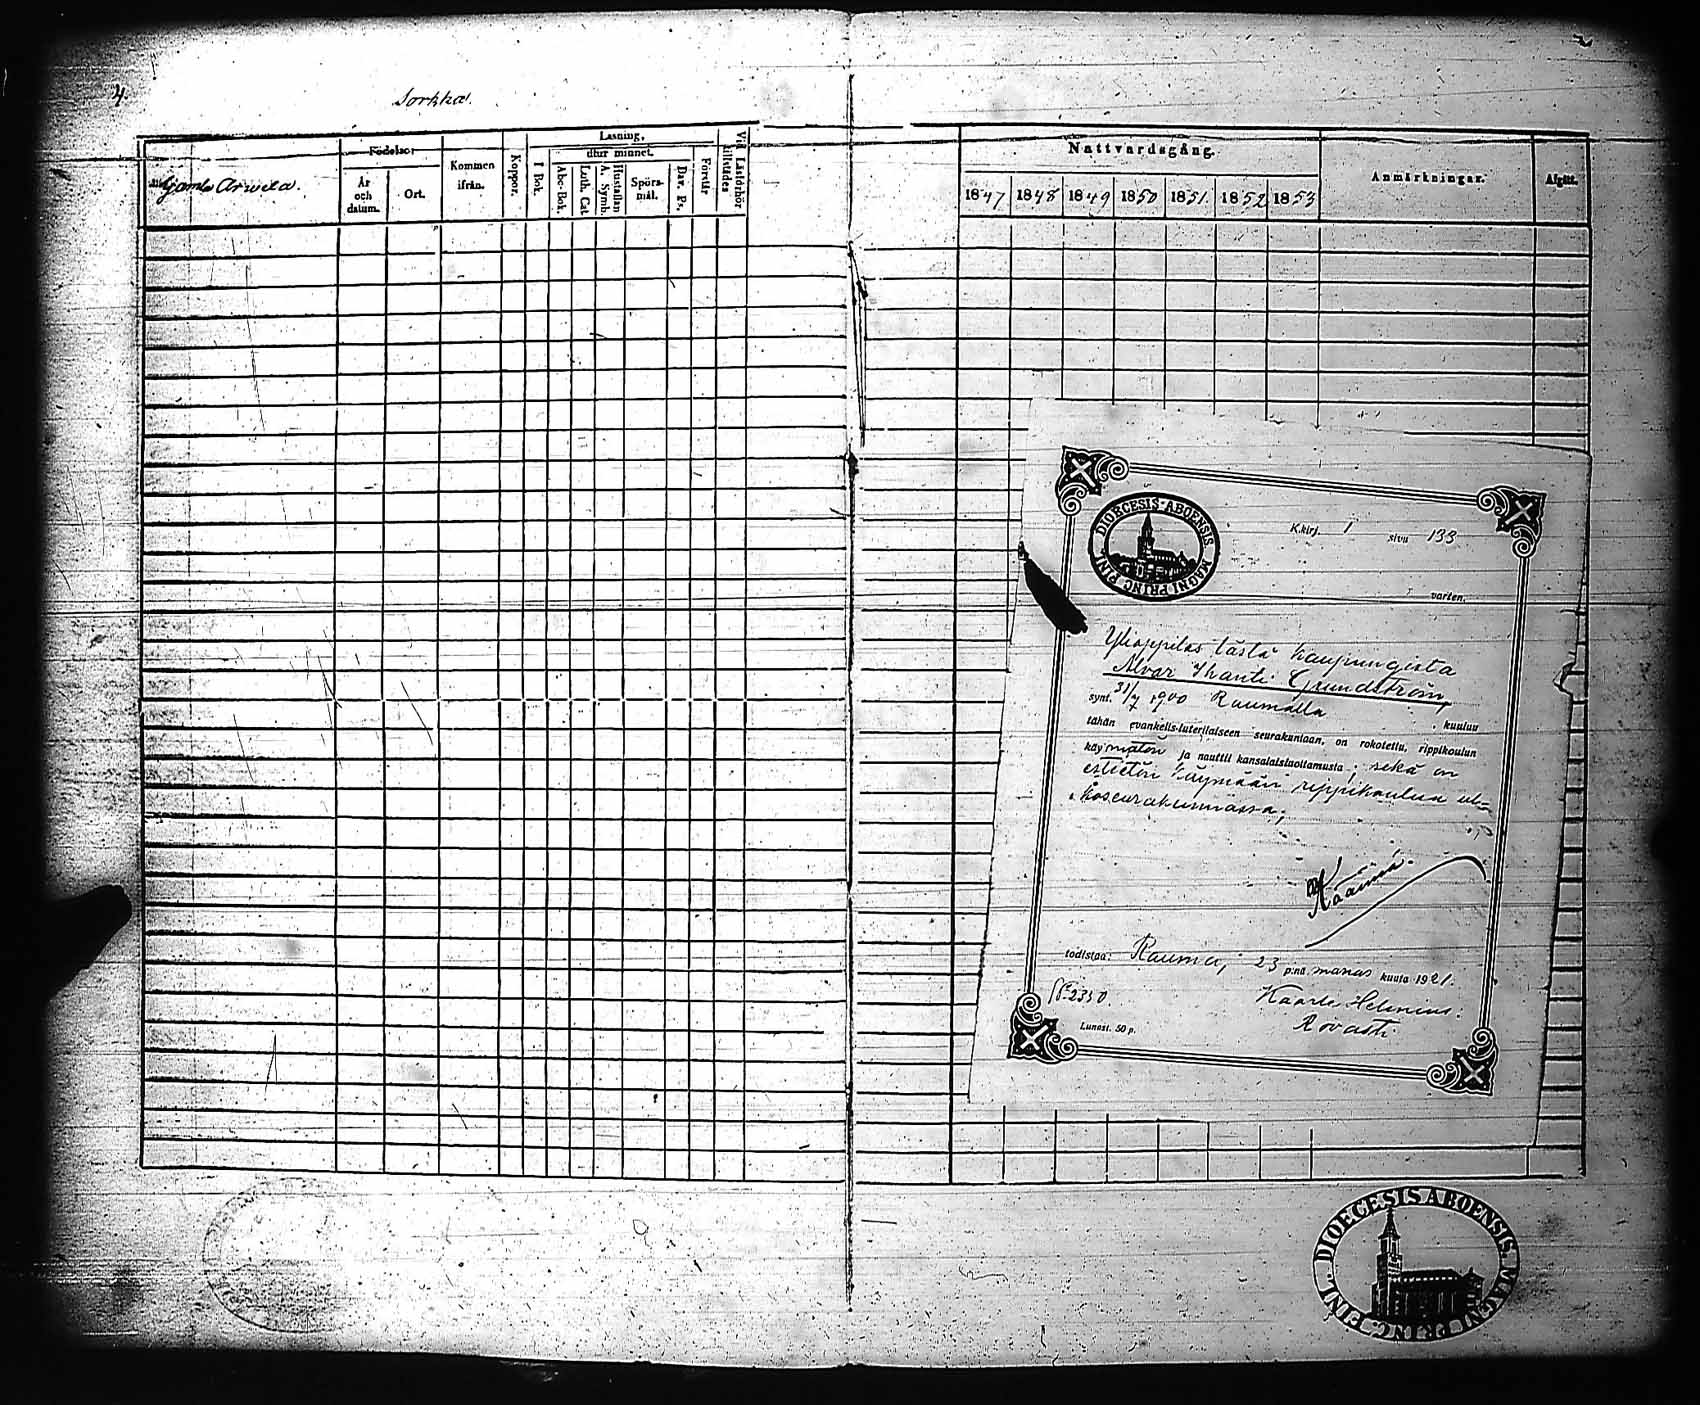 4
Sorkka.
Gamla Arwela.
Födelse:
År och datum.
Ort.
Kommen ifrån.
Koppor.
Läsning,
I Bok.
utur minnet.
Abc-Bok.
Luth. Cat.
A. Symb.
Hustaflan
Spörsmål.
Dav. Ps.
Förstår
Vid Läsförhör tillstädes
Nattvardsgång.
1847 1848 1849 1850 1851. 1852 1853
Anmärkningar.
Afgått.
DIOECESIS ABOENSIS MAGNI PRINC. FINL.
K.kirj. 1 sivu 133
varten.
Ylioppilas tästä kaupungista
Alvar Grundström,
synt. 31/7 1900 Raumalla, kuuluu
tähän evankelis-luterilaiseen seurakuntaan, on rokotettu, rippikoulun
käymätön ja nauttii kansalaisluottamusta; sekä on
esteetön käymään rippikoulua
koseurakunnassa;
todistaa: Rauma, 23 p:nä marras kuuta 1921.
Kaarlo Helenius.
Rovasti
2350.
Lunast. 50 p.
DIOECESIS ABOENSIS MAGNI PRINC. FINL.